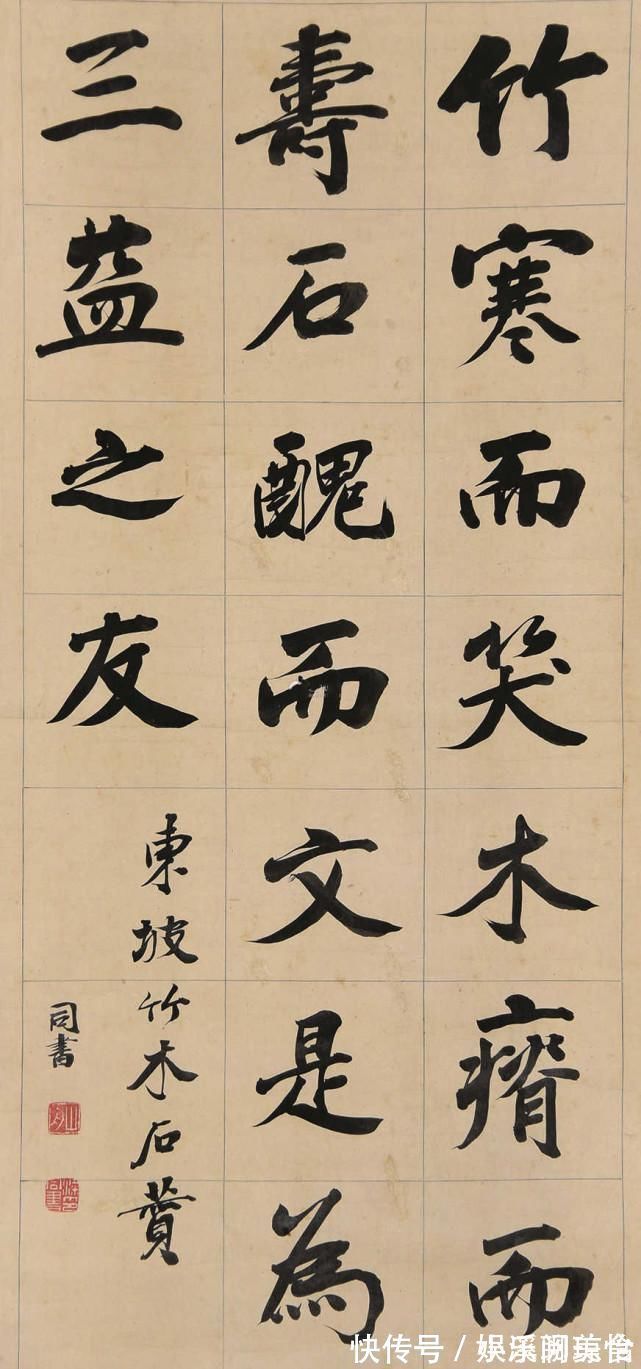 竹寒而笑木瘠而
壽石醜而文是為
三益之友
東坡竹木石贊
同書
山舟
梁同書
快传号 /